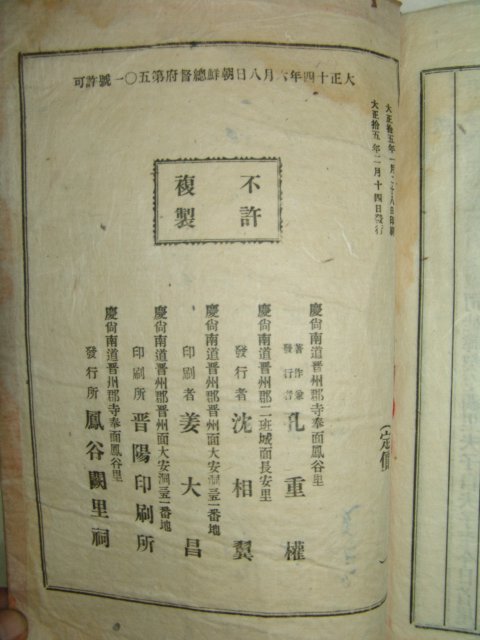 大正十四年六月八日朝鮮總督府第五〇一號許可
大正拾五年一月二十八日印刷
大正拾五年二月十四日發行
不許
複製
(定價
慶尙南道晋州郡寺奉面鳳谷里
著作兼發行者 孔重權
慶尙南道晋州郡二班城面長安里
發行者 沈相翼
慶尙南道晋州郡晋州面大安洞壹一番地
印刷者 姜大昌
慶尙南道晋州郡晋州面大安洞壹一番地
印刷所 晋陽印刷所
慶尙南道晋州郡寺奉面鳳谷里
發行所 鳳谷闕里祠